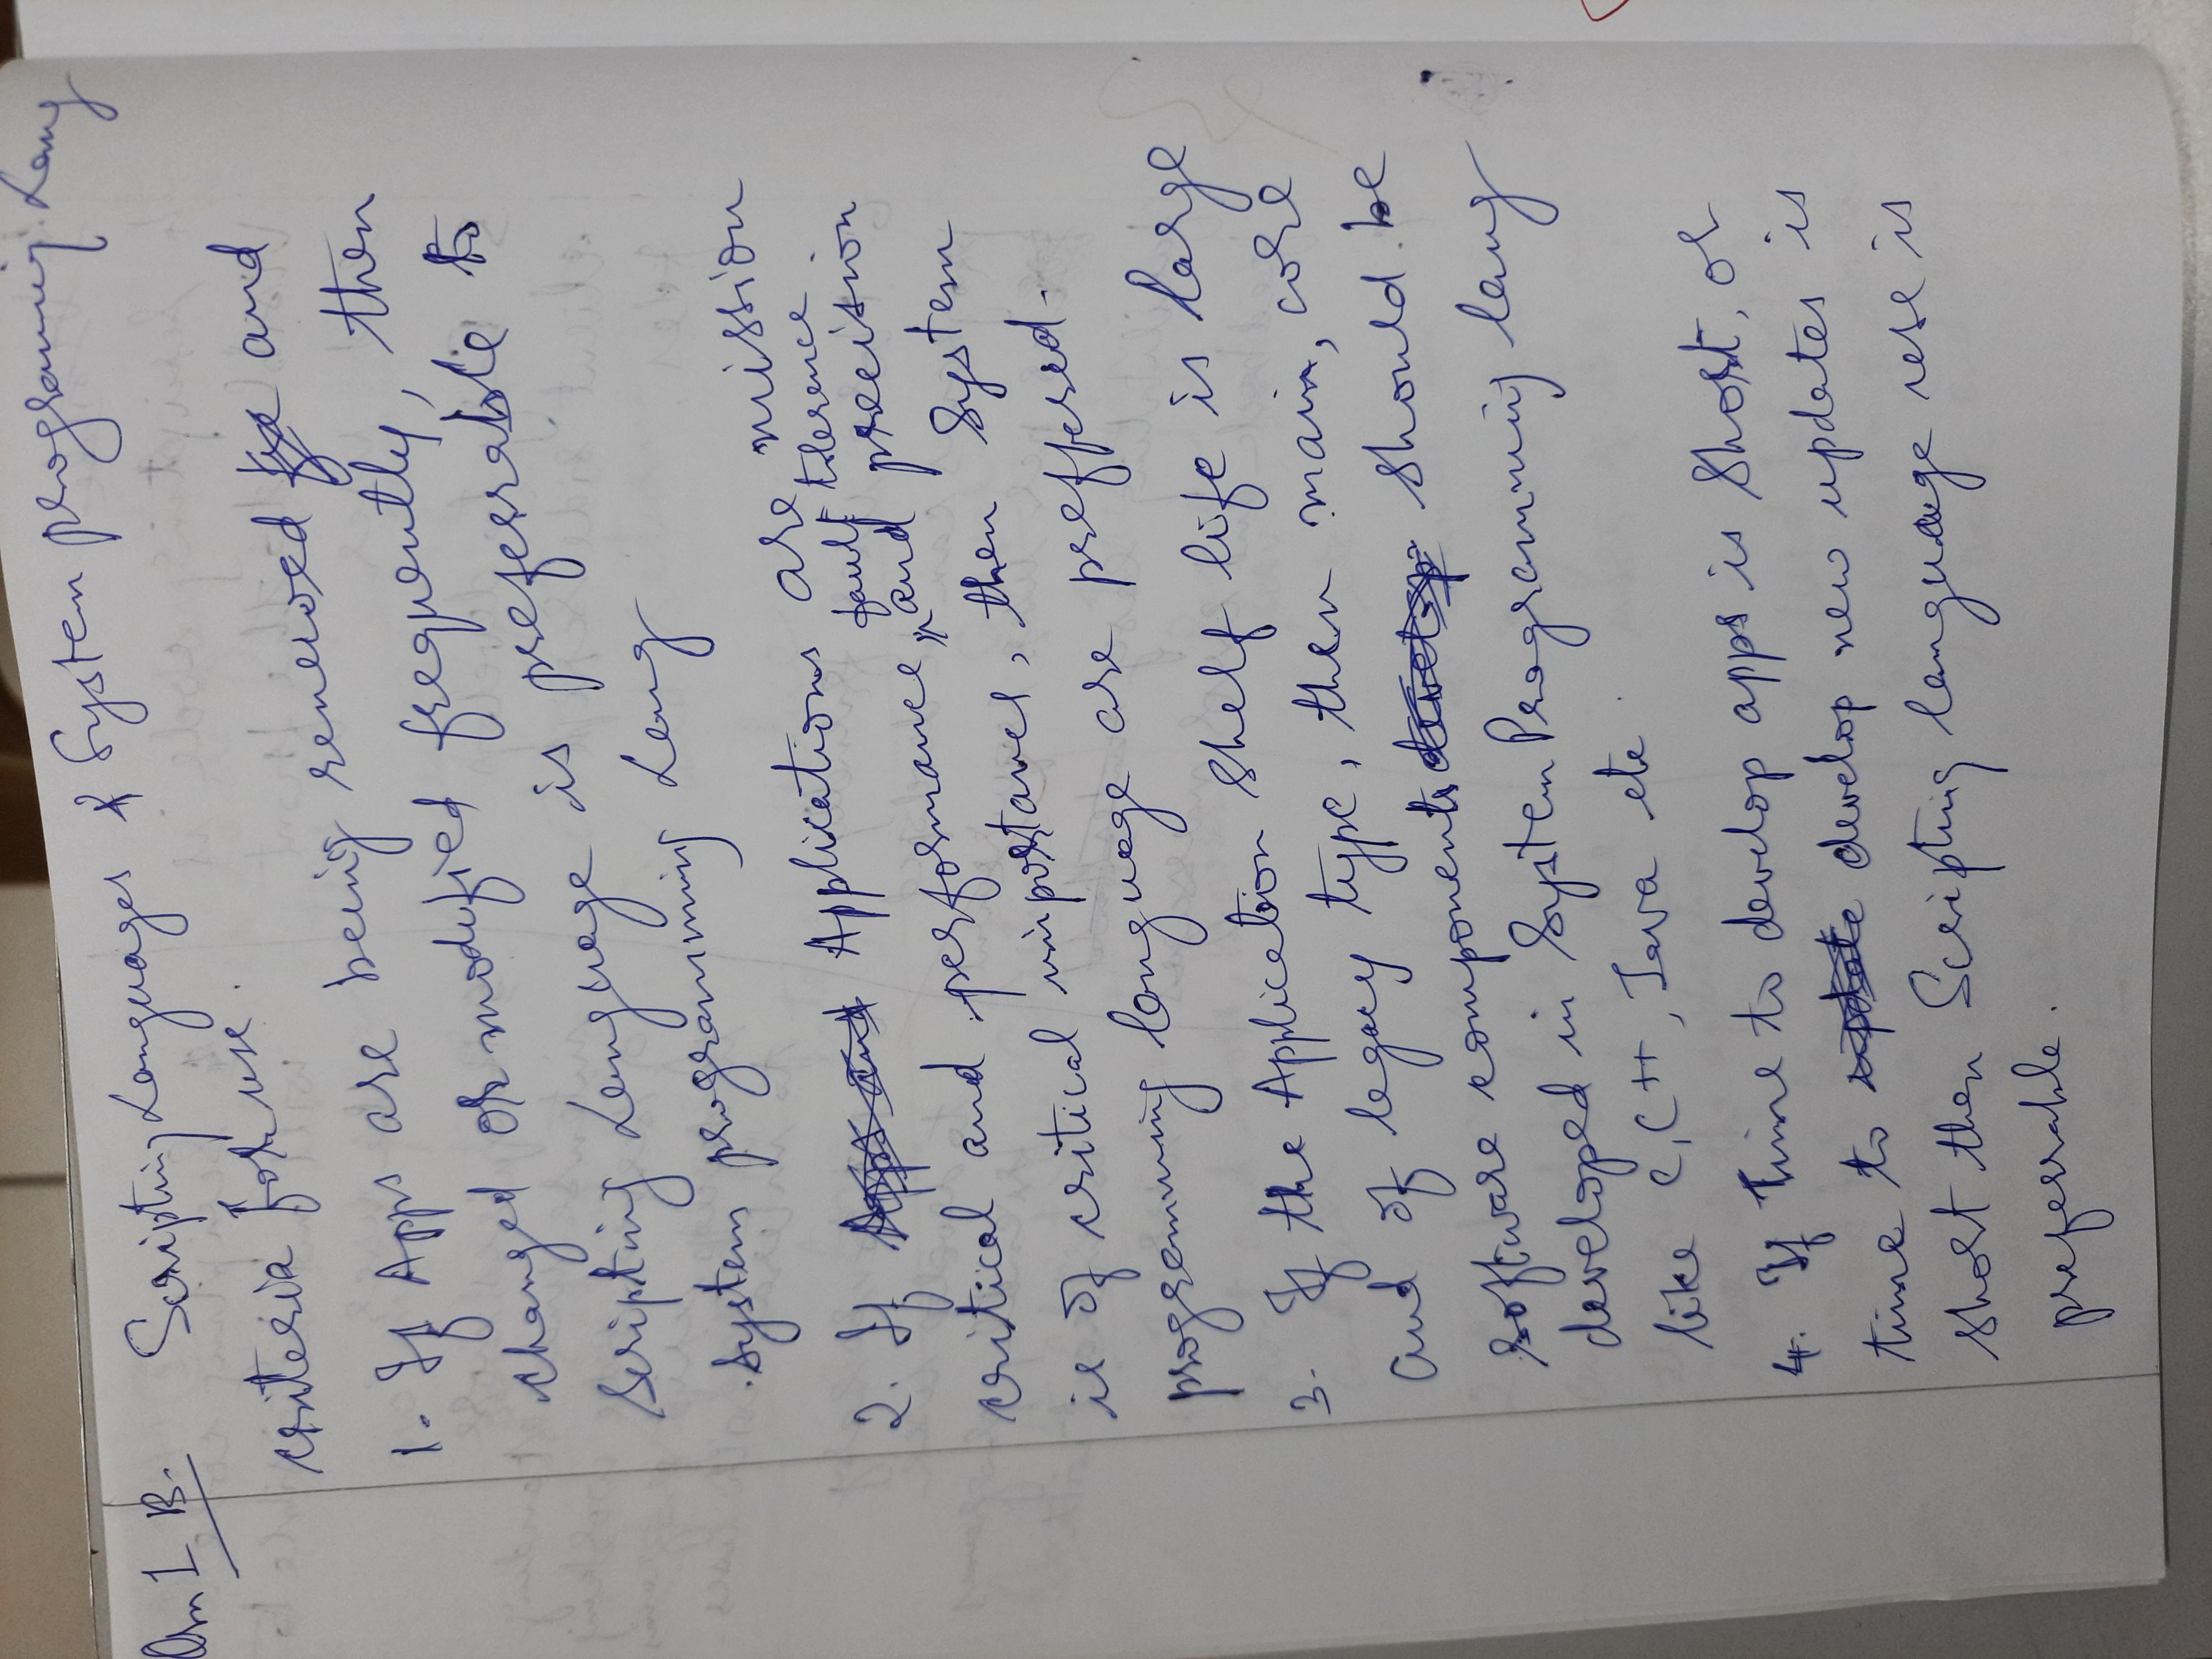 Qn 1 B. Scripting Languages & System programing Lang
criteria for use.
1. If Apps are being renewed and
changed or modified frequently, then
Scripting Language is preferrable to
System programming Lang
2. If Applications are mission
critical and performance, fault tolerence and precision
is of critical importance, then System
programming language are preffered.
3. If the Application shelf life is large
and of legacy type, then main, core
software components should be
developed in System Programming lang
like C, C++, Java etc
4. If Time to develop apps is Short, or
time to develop new updates is
short then Scripting language use is
preferrable.